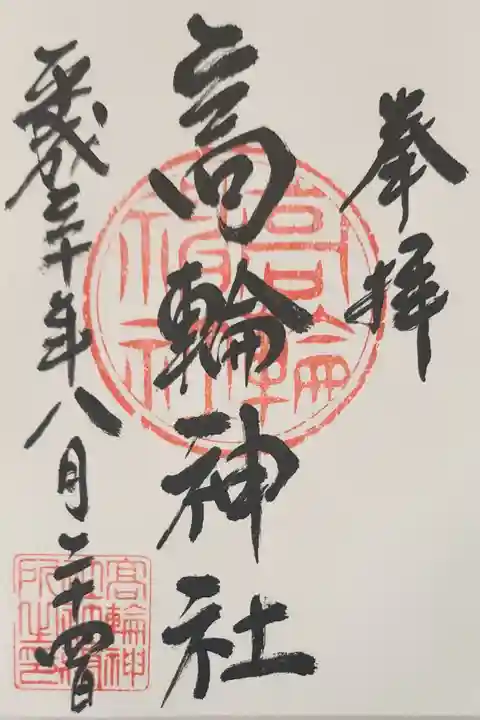 奉拝
高輪神社
平成三十年八月二十四日
高輪
神社
高輪神
所之印